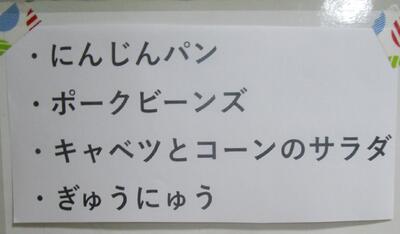 ・にんじんパン
・ポークビーンズ
・キャベツとコーンのサラダ
・ぎゅうにゅう